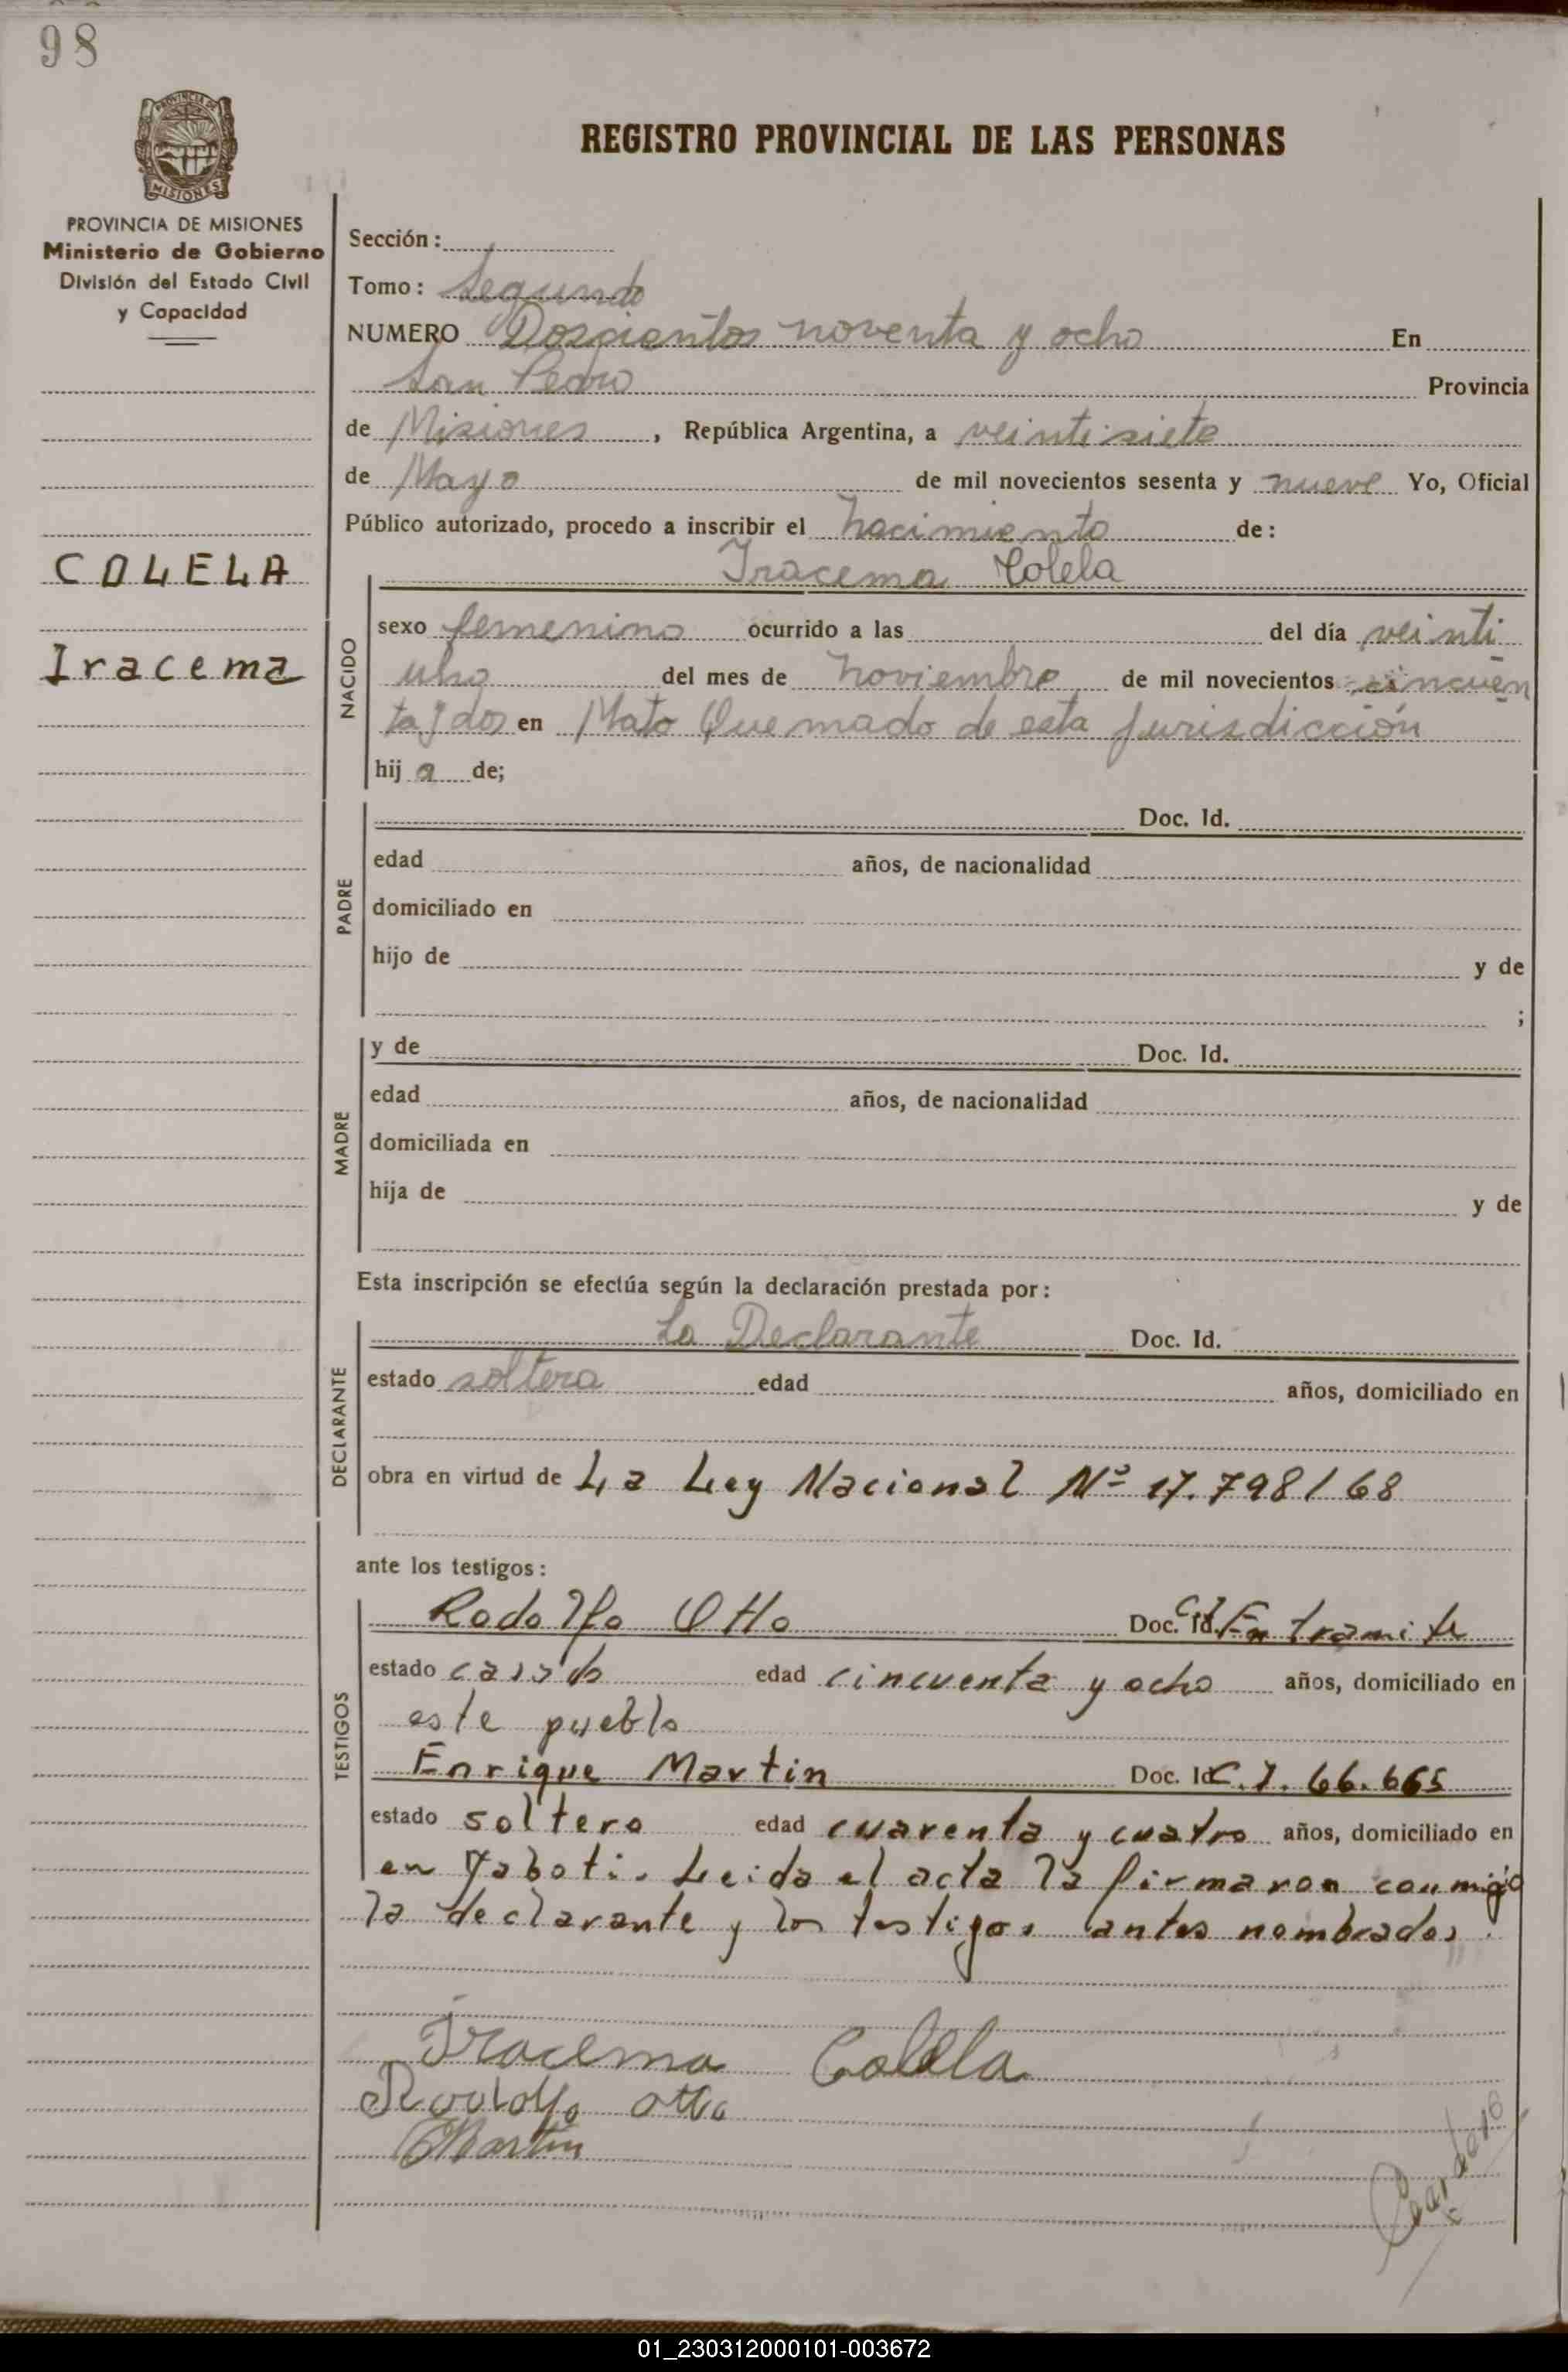 98
PROVINCIA DE
MISIONES
REGISTRO PROVINCIAL DE LAS PERSONAS
PROVINCIA DE MISIONES
Ministerio de Gobierno
División del Estado Civil
y Capacidad
COLELA
Iracema
Sección:
Tomo: Segundo
NUMERO Doscientos noventa y ocho En
San Pedro Provincia
de Misiones, República Argentina, a veintisiete
de Mayo de mil novecientos sesenta y nueve Yo, Oficial
Público autorizado, procedo a inscribir el nacimiento de:
Iracema Colela
NACIDO
sexo femenino ocurrido a las del día veinti
uno del mes de noviembre de mil novecientos cincuen
ta y dos en Mato Quemado de esta jurisdicción
hij a de;
PADRE
Doc. Id.
edad años, de nacionalidad
domiciliado en
hijo de y de
;
MADRE
y de Doc. Id.
edad años, de nacionalidad
domiciliada en
hija de y de
Esta inscripción se efectúa según la declaración prestada por:
DECLARANTE
La Declarante Doc. Id.
estado soltera edad años, domiciliado en
obra en virtud de La Ley Nacional Nº 17.798/68
ante los testigos:
TESTIGOS
Rodolfo Otto Doc. Id. C.I. En tramite
estado casado edad cincuenta y ocho años, domiciliado en
este pueblo
Enrique Martin Doc. Id C.I. 66.665
estado soltero edad cuarenta y cuatro años, domiciliado en
en Yaboti. Leida el acta la firmaron conmigo
la declarante y los testigos antes nombrados.
Iracema Colela
Rodolfo Otto
EMartin
01_230312000101-003672